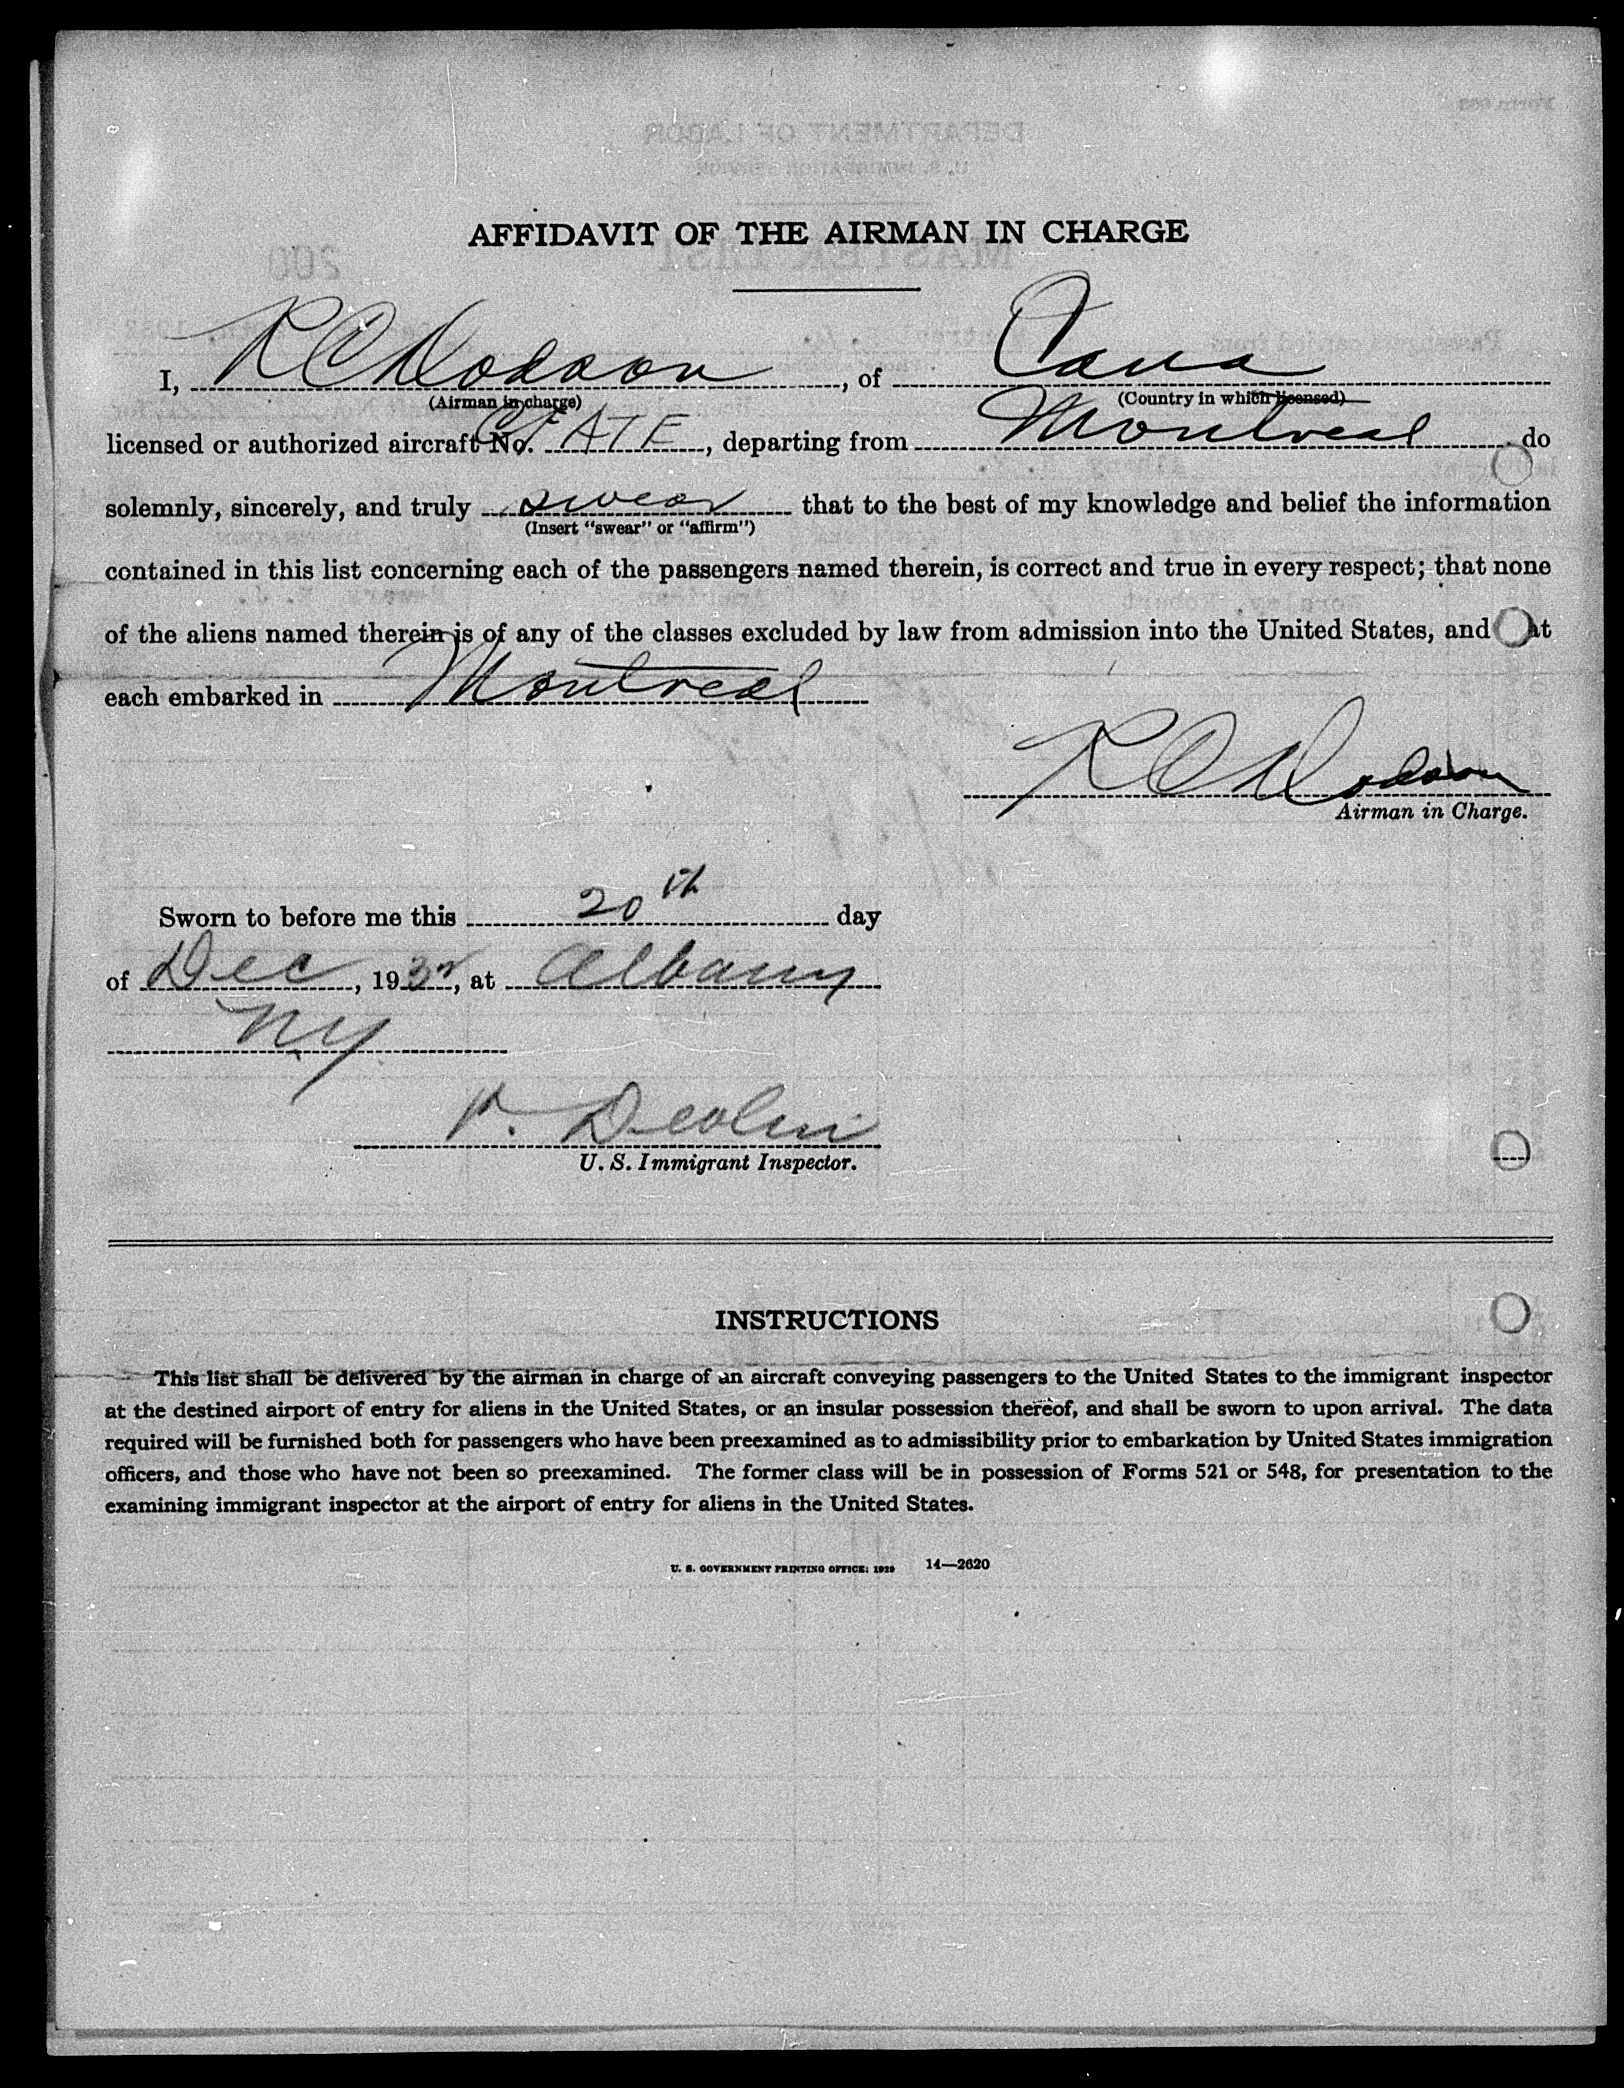 AFFIDAVIT OF THE AIRMAN IN CHARGE
I, R C Dodson, of Cana
(Airman in charge) (Country in which licensed)
licensed or authorized aircraft No. CF ATE, departing from Montreal do
solemnly, sincerely, and truly swear that to the best of my knowledge and belief the information
(Insert "swear" or "affirm")
contained in this list concerning each of the passengers named therein, is correct and true in every respect; that none
of the aliens named therein is of any of the classes excluded by law from admission into the United States, and at
each embarked in Montreal
R C Dodson
Airman in Charge.
Sworn to before me this 20th day
of Dec, 1932, at Albany
N.Y.
U. S. Immigrant Inspector.
INSTRUCTIONS
This list shall be delivered by the airman in charge of an aircraft conveying passengers to the United States to the immigrant inspector
at the destined airport of entry for aliens in the United States, or an insular possession thereof, and shall be sworn to upon arrival. The data
required will be furnished both for passengers who have been preexamined as to admissibility prior to embarkation by United States immigration
officers, and those who have not been so preexamined. The former class will be in possession of Forms 521 or 548, for presentation to the
examining immigrant inspector at the airport of entry for aliens in the United States.
U. S. GOVERNMENT PRINTING OFFICE: 1929 14—2620